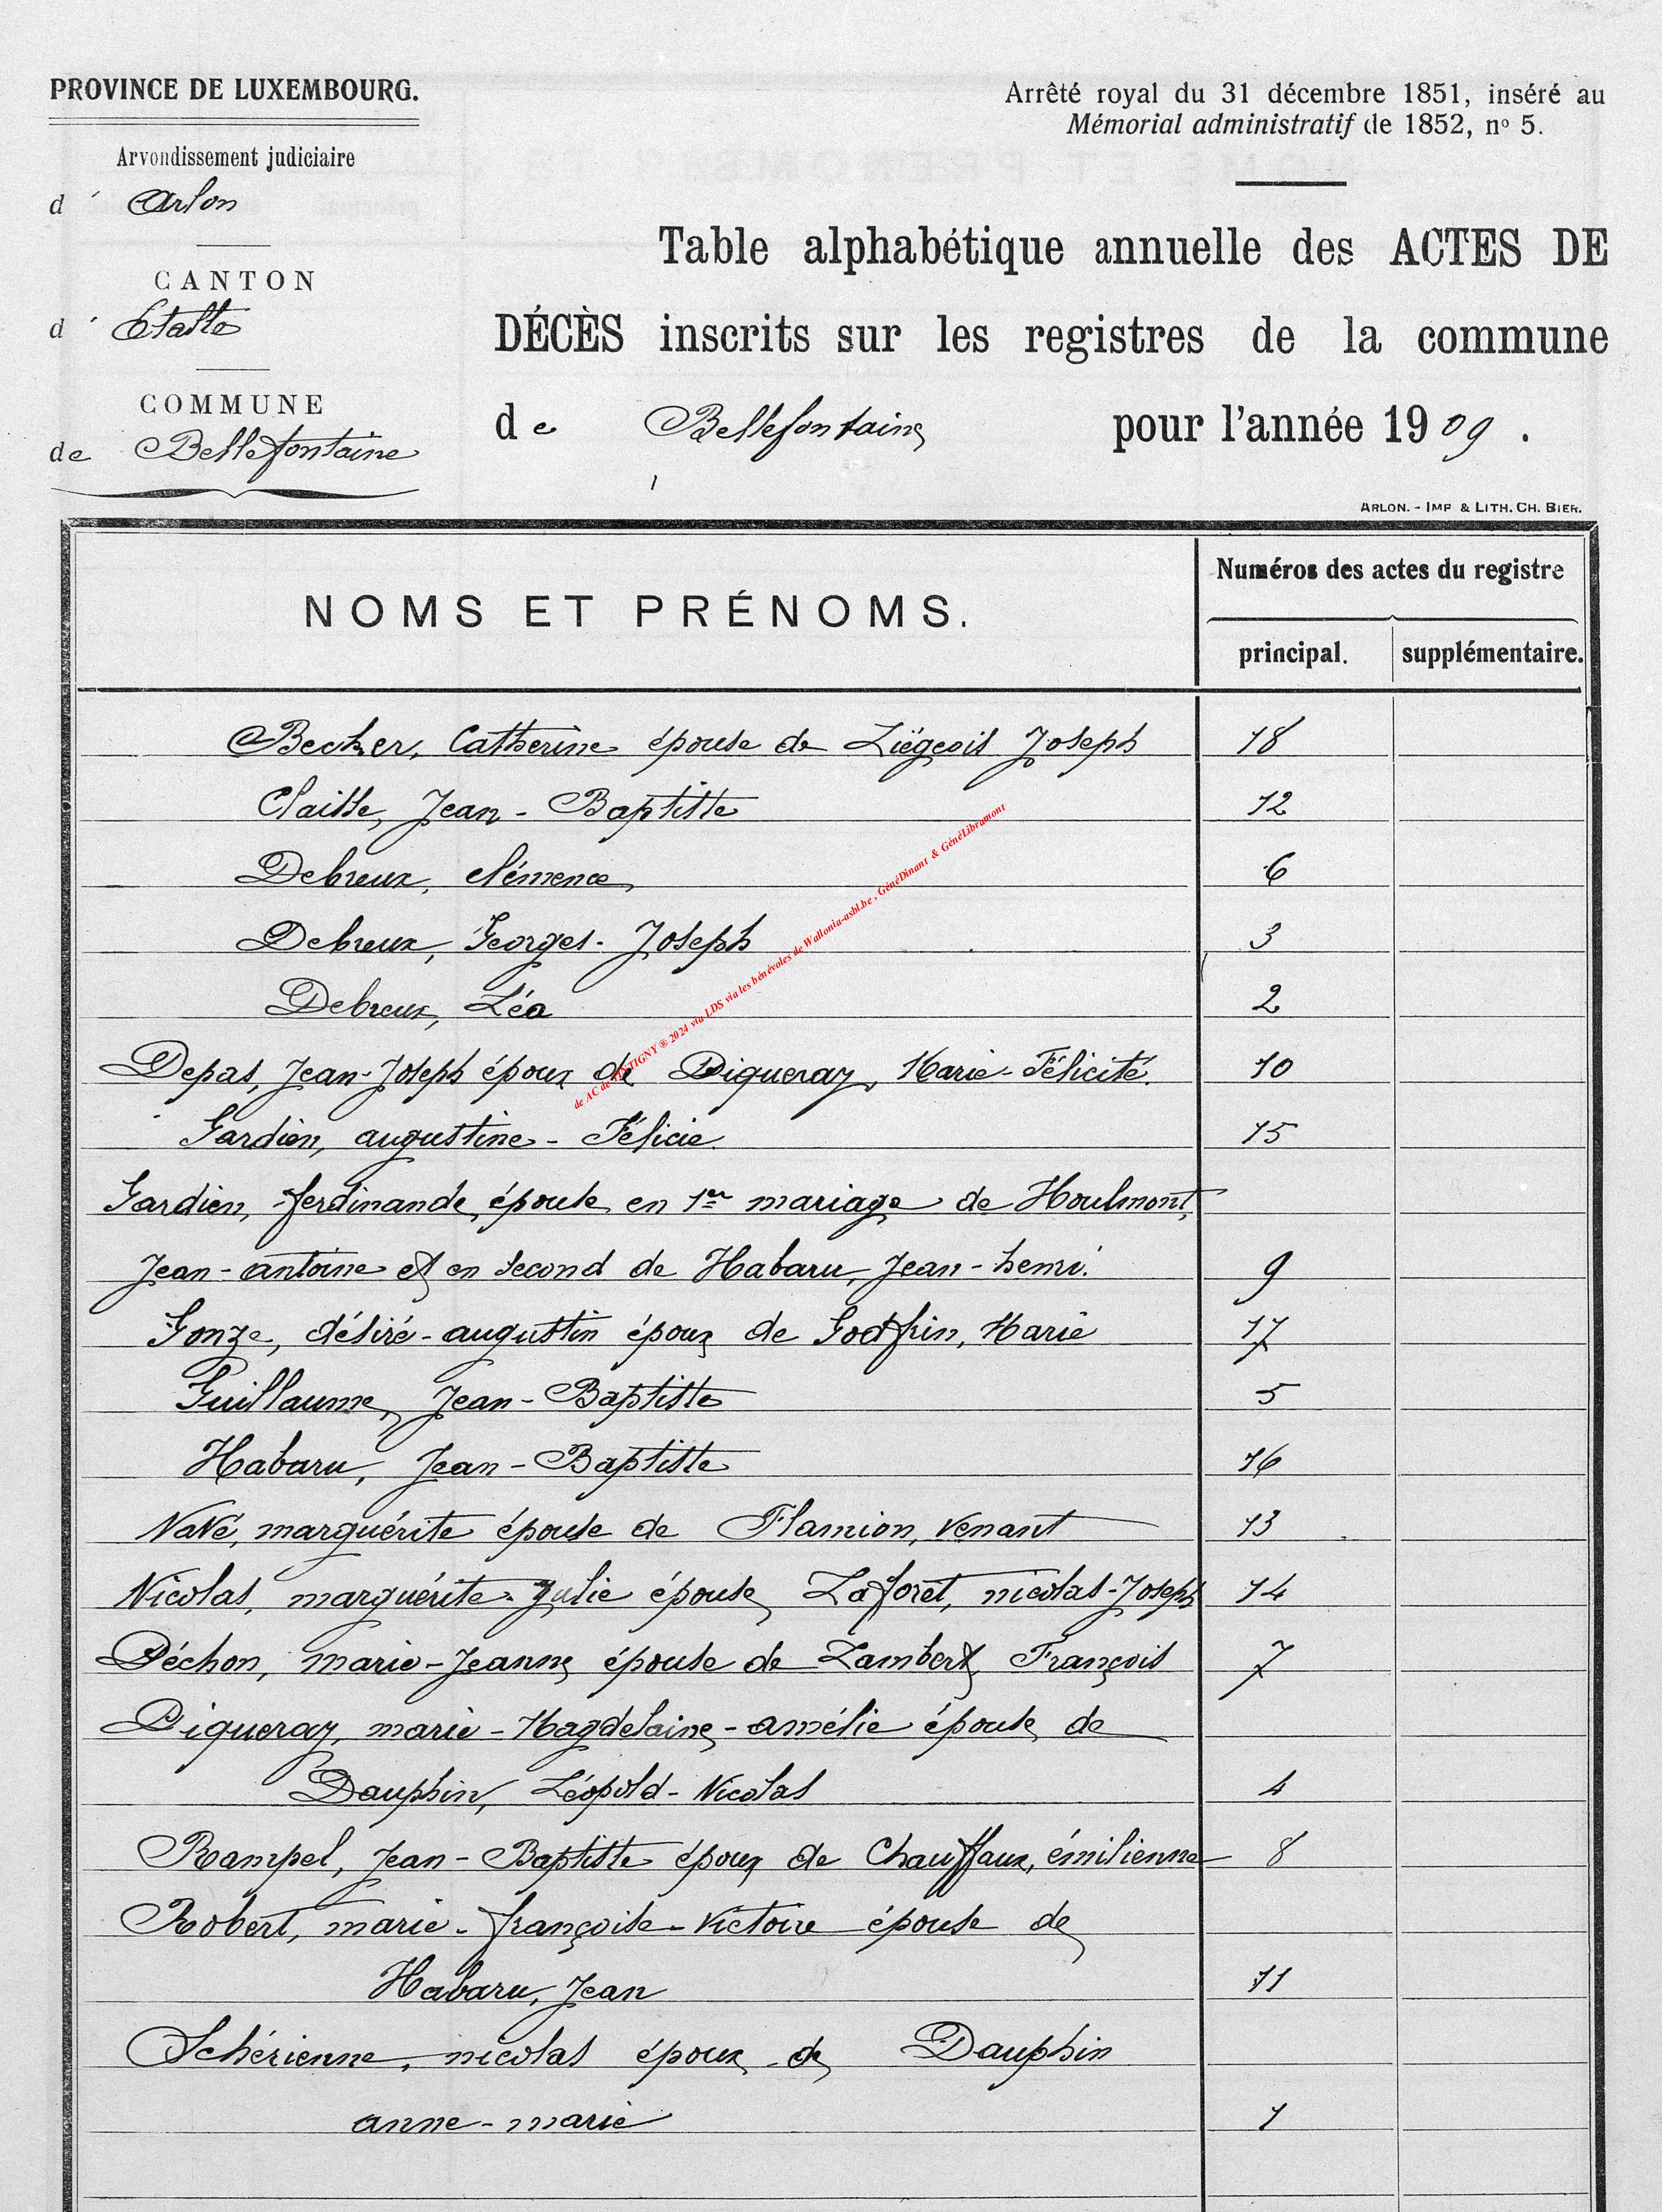 PROVINCE DE LUXEMBOURG.
Arrondissement judiciaire
d' Arlon
CANTON
d' Etalle
COMMUNE
de Bellefontaine
Arrêté royal du 31 décembre 1851, inséré au
Mémorial administratif de 1852, nº 5.
Table alphabétique annuelle des ACTES DE
DÉCÈS inscrits sur les registres de la commune
de Bellefontaine pour l'année 1909.
ARLON. - IMP. & LITH. CH. BIER.
NOMS ET PRÉNOMS.
Numéros des actes du registre
principal. supplémentaire.
Becker, Catherine épouse de Liégeois Joseph 18
Claisse, Jean-Baptiste 12
Debreux, clémence 6
Debreux, Georges-Joseph 3
Debreux, Léa 2
Depas, Jean-Joseph époux de Piqueray, Marie-Félicité. 10
Gardien, augustine-Félicie. 15
Gardien, ferdinande, épouse en 1er mariage de Houlmont,
Jean-antoine et en second de Habaru, Jean-henri. 9
Gonze, désiré-augustin époux de Godfrin, Marie 17
Guillaume, Jean-Baptiste 5
Habaru, Jean-Baptiste 16
Navé, marguérite épouse de Flamion, Venant 13
Nicolas, marguérite-Julie épouse Laforet, nicolas-Joseph 14
Péchon, marie-Jeanne épouse de Lambert, François 7
Piqueray, marie-Magdelaine-amélie épouse de
Dauphin, Léopold-Nicolas 4
Rampel, Jean-Baptiste époux de Chauffaux, émilienne 8
Robert, marie-françoise-Victoire épouse de
Habaru, Jean 11
Schérienne, nicolas époux de Dauphin
anne-marie 1
de AC de TINTIGNY ® 2024 via LDS via les bénévoles de Wallonia-asbl.be , GénéDinant & GénéLibramont